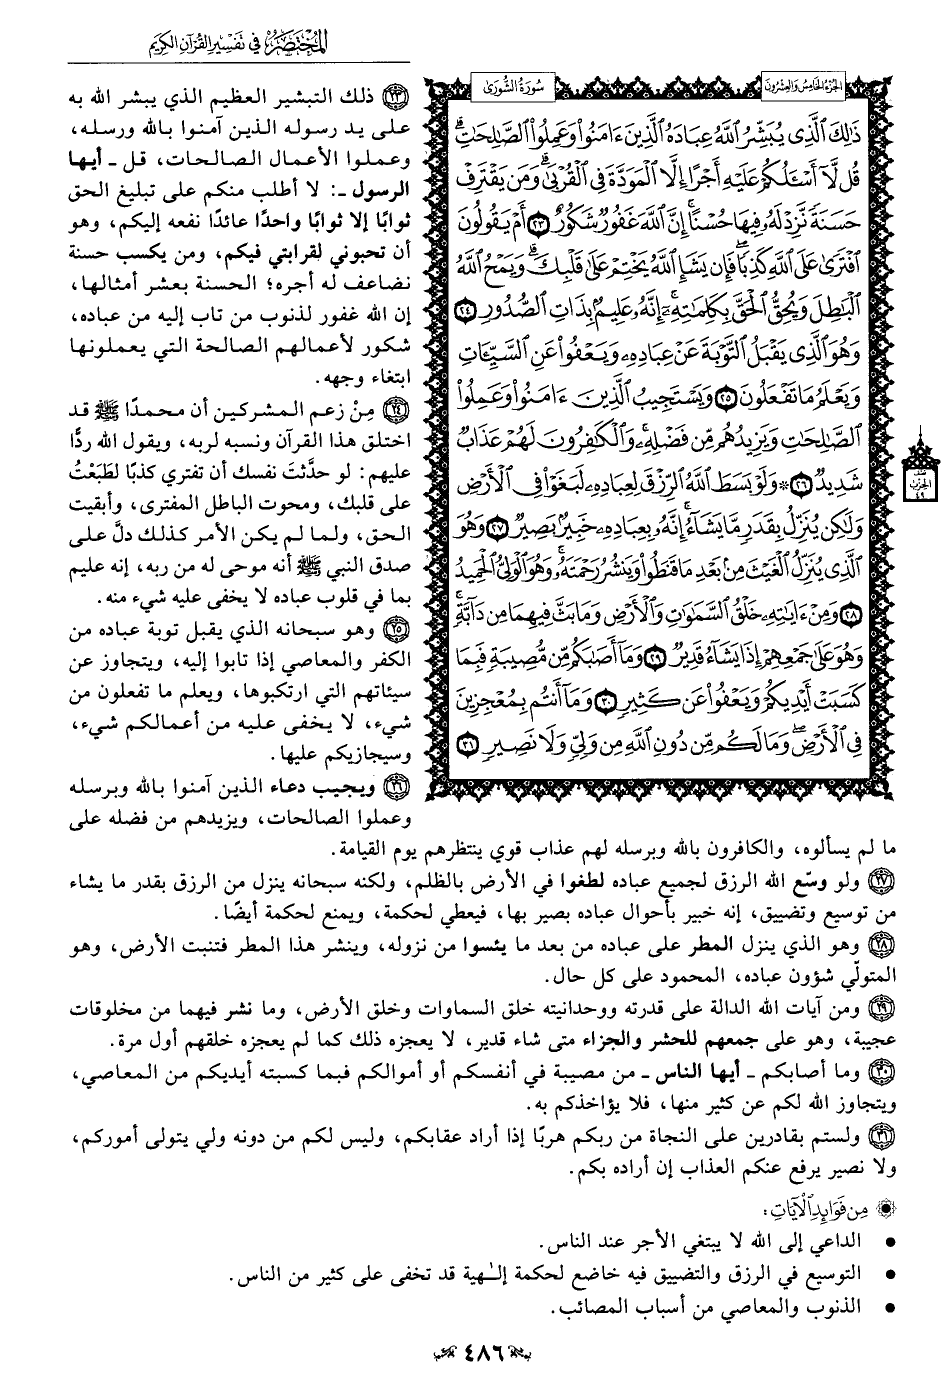 المختصر في تفسير القرآن الكريم
الجزء الخامس والعشرون
سورة الشورى
ذَٰلِكَ ٱلَّذِي يُبَشِّرُ ٱللَّهُ عِبَادَهُ ٱلَّذِينَ ءَامَنُواْ وَعَمِلُواْ ٱلصَّٰلِحَٰتِۗ
قُل لَّآ أَسْـَٔلُكُمْ عَلَيْهِ أَجْرًا إِلَّا ٱلْمَوَدَّةَ فِي ٱلْقُرْبَىٰۗ وَمَن يَقْتَرِفْ
حَسَنَةً نَّزِدْ لَهُۥ فِيهَا حُسْنًاۚ إِنَّ ٱللَّهَ غَفُورٌ شَكُورٌ ٢٣ أَمْ يَقُولُونَ
ٱفْتَرَىٰ عَلَى ٱللَّهِ كَذِبًاۖ فَإِن يَشَإِ ٱللَّهُ يَخْتِمْ عَلَىٰ قَلْبِكَۗ وَيَمْحُ ٱللَّهُ
ٱلْبَٰطِلَ وَيُحِقُّ ٱلْحَقَّ بِكَلِمَٰتِهِۦٓۚ إِنَّهُۥ عَلِيمٌۢ بِذَاتِ ٱلصُّدُورِ ٢٤
وَهُوَ ٱلَّذِي يَقْبَلُ ٱلتَّوْبَةَ عَنْ عِبَادِهِۦ وَيَعْفُواْ عَنِ ٱلسَّيِّـَٔاتِ
وَيَعْلَمُ مَا تَفْعَلُونَ ٢٥ وَيَسْتَجِيبُ ٱلَّذِينَ ءَامَنُواْ وَعَمِلُواْ
ٱلصَّٰلِحَٰتِ وَيَزِيدُهُم مِّن فَضْلِهِۦۚ وَٱلْكَٰفِرُونَ لَهُمْ عَذَابٌ
شَدِيدٌ ٢٦ ۞ وَلَوْ بَسَطَ ٱللَّهُ ٱلرِّزْقَ لِعِبَادِهِۦ لَبَغَوْاْ فِي ٱلْأَرْضِ
وَلَٰكِن يُنَزِّلُ بِقَدَرٍ مَّا يَشَآءُۚ إِنَّهُۥ بِعِبَادِهِۦ خَبِيرٌۢ بَصِيرٌ ٢٧ وَهُوَ
ٱلَّذِي يُنَزِّلُ ٱلْغَيْثَ مِنۢ بَعْدِ مَا قَنَطُواْ وَيَنشُرُ رَحْمَتَهُۥۚ وَهُوَ ٱلْوَلِيُّ ٱلْحَمِيدُ
٢٨ وَمِنْ ءَايَٰتِهِۦ خَلْقُ ٱلسَّمَٰوَٰتِ وَٱلْأَرْضِ وَمَا بَثَّ فِيهِمَا مِن دَآبَّةٍۚ
وَهُوَ عَلَىٰ جَمْعِهِمْ إِذَا يَشَآءُ قَدِيرٌ ٢٩ وَمَآ أَصَٰبَكُم مِّن مُّصِيبَةٍ فَبِمَا
كَسَبَتْ أَيْدِيكُمْ وَيَعْفُواْ عَن كَثِيرٍ ٣٠ وَمَآ أَنتُم بِمُعْجِزِينَ
فِي ٱلْأَرْضِۖ وَمَا لَكُم مِّن دُونِ ٱللَّهِ مِن وَلِيٍّ وَلَا نَصِيرٍ ٣١
نصف
الحزب
٤٩
٢٣ ذلك التبشير العظيم الذي يبشر الله به
على يد رسوله الذين آمنوا بالله ورسله،
وعملوا الأعمال الصالحات، قل ـ أيها
الرسول ـ: لا أطلب منكم على تبليغ الحق
ثوابًا إلا ثوابًا واحدًا عائدًا نفعه إليكم، وهو
أن تحبوني لقرابتي فيكم، ومن يكسب حسنة
نضاعف له أجره؛ الحسنة بعشر أمثالها،
إن الله غفور لذنوب من تاب إليه من عباده،
شكور لأعمالهم الصالحة التي يعملونها
ابتغاء وجهه.
٢٤ مِنْ زعم المشركين أن محمدًا ﷺ قد
اختلق هذا القرآن ونسبه لربه، ويقول الله ردًّا
عليهم: لو حدَّثتَ نفسك أن تفتري كذبًا لطَبَعْتُ
على قلبك، ومحوت الباطل المفترى، وأبقيت
الحق، ولما لم يكن الأمر كذلك دلَّ على
صدق النبي ﷺ أنه موحى له من ربه، إنه عليم
بما في قلوب عباده لا يخفى عليه شيء منه.
٢٥ وهو سبحانه الذي يقبل توبة عباده من
الكفر والمعاصي إذا تابوا إليه، ويتجاوز عن
سيئاتهم التي ارتكبوها، ويعلم ما تفعلون من
شيء، لا يخفى عليه من أعمالكم شيء،
وسيجازيكم عليها.
٢٦ ويجيب دعاء الذين آمنوا بالله وبرسله
وعملوا الصالحات، ويزيدهم من فضله على
ما لم يسألوه، والكافرون بالله وبرسله لهم عذاب قوي ينتظرهم يوم القيامة.
٢٧ ولو وسّع الله الرزق لجميع عباده لطغوا في الأرض بالظلم، ولكنه سبحانه ينزل من الرزق بقدر ما يشاء
من توسيع وتضييق، إنه خبير بأحوال عباده بصير بها، فيعطي لحكمة، ويمنع لحكمة أيضًا.
٢٨ وهو الذي ينزل المطر على عباده من بعد ما يئسوا من نزوله، وينشر هذا المطر فتنبت الأرض، وهو
المتولّي شؤون عباده، المحمود على كل حال.
٢٩ ومن آيات الله الدالة على قدرته ووحدانيته خلق السماوات وخلق الأرض، وما نشر فيهما من مخلوقات
عجيبة، وهو على جمعهم للحشر والجزاء متى شاء قدير، لا يعجزه ذلك كما لم يعجزه خلقهم أول مرة.
٣٠ وما أصابكم ـ أيها الناس ـ من مصيبة في أنفسكم أو أموالكم فبما كسبته أيديكم من المعاصي،
ويتجاوز الله لكم عن كثير منها، فلا يؤاخذكم به.
٣١ ولستم بقادرين على النجاة من ربكم هربًا إذا أراد عقابكم، وليس لكم من دونه ولي يتولى أموركم،
ولا نصير يرفع عنكم العذاب إن أراده بكم.
من فوائد الآيات:
• الداعي إلى الله لا يبتغي الأجر عند الناس.
• التوسيع في الرزق والتضييق فيه خاضع لحكمة إلـٰهية قد تخفى على كثير من الناس.
• الذنوب والمعاصي من أسباب المصائب.
٤٨٦